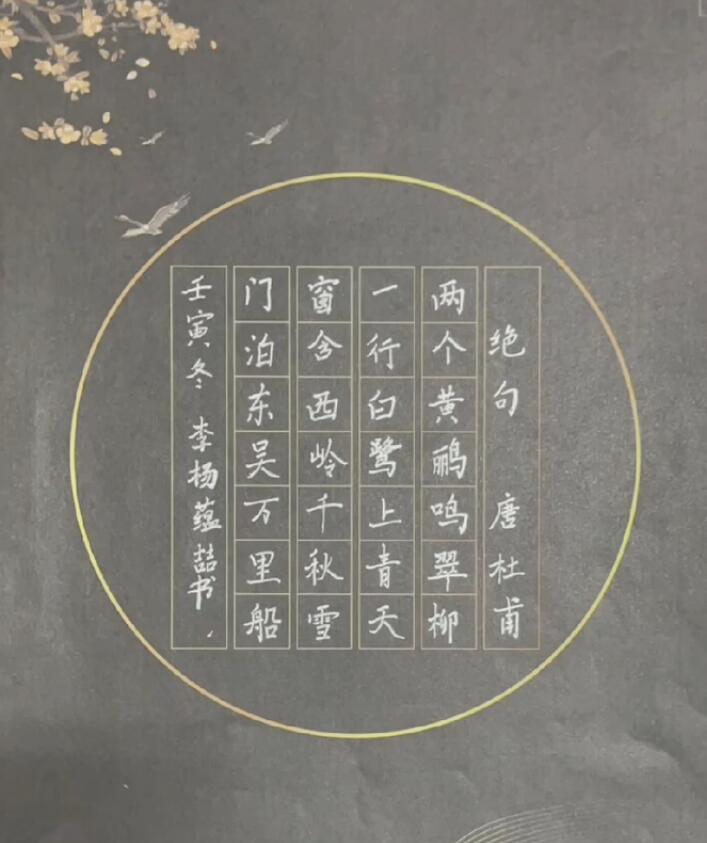 绝句 唐 杜甫
两个黄鹂鸣翠柳
一行白鹭上青天
窗含西岭千秋雪
门泊东吴万里船
壬寅冬 李杨蕴喆书